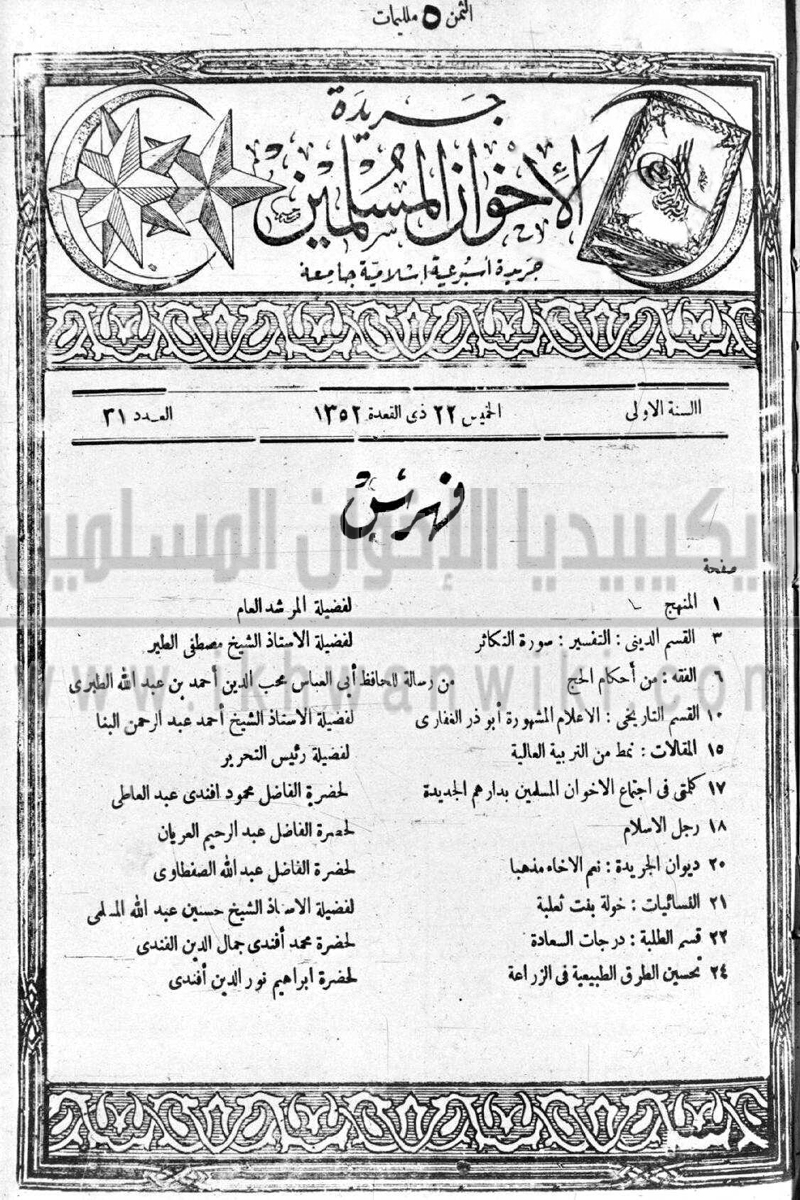 الثمن ٥ مليمات
جريدة
الإخوان المسلمين
جريدة أسبوعية إسلامية جامعة
السنة الاولى الخميس ٢٢ ذى القعدة ١٣٥٢ العدد ٣١
فهرس
ويكيبيديا الإخوان المسلمين
www.ikhwanwiki.com
صفحة
١ المنهج لفضيلة المرشد العام
٣ القسم الدينى : التفسير : سورة التكاثر لفضيلة الاستاذ الشيخ مصطفى الطير
٦ الفقه : من أحكام الحج من رسالة للحافظ أبى العباس محب الدين أحمد بن عبد الله الطبرى
١٠ القسم التاريخى : الاعلام المشهورة أبو ذر الغفارى لفضيلة الاستاذ الشيخ أحمد عبد الرحمن البنا
١٥ المقالات : نمط من التربية العالية لفضيلة رئيس التحرير
١٧ كلمتى فى اجتماع الاخوان المسلمين بدارهم الجديدة لحضرة الفاضل محمود افندى عبد العاطى
١٨ رجل الاسلام لحضرة الفاضل عبد الرحيم العريان
٢٠ ديوان الجريدة : نعم الاخاء مذهبا لحضرة الفاضل عبد الله الصفطاوى
٢١ النسائيات : خولة بنت ثعلبة لفضيلة الاستاذ الشيخ حسنين عبد الله المسلمى
٢٢ قسم الطلبة : درجات السعادة لحضرة محمد أفندى جمال الدين الفندى
٢٤ تحسين الطرق الطبيعية فى الزراعة لحضرة ابراهيم نور الدين أفندى